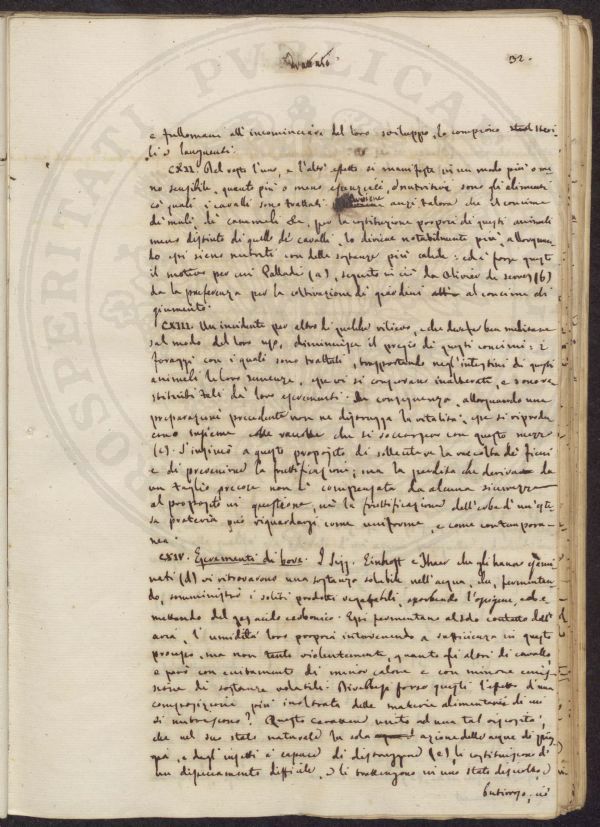 32.
e tallomani all'incominciare del loro sviluppo, le comprono steri
li o languenti.
CXII. Del resto l'uno, e l'altro effetto si manifesta in un modo più o me
no sensibile, quanto più o meno e nutritivi sono gli alimenti
co' quali i cavalli sono trattati. anzi talora che il concime
di muli, di cammelli &c, per la costituzione propria di questi animali
meno distinto di quello de' cavalli, lo diviene notabilmente più, allorquan
do essi sieno nutriti con delle sostanze più calde: ed è forse questo
il motivo per cui Palladio (a), seguito in ciò da Olivier de Serres (b)
da la preferenza per la coltivazione di giardini al concime di
giumento.
CXIII. Un incidente per altro di qualche rilievo, e che devesse ben meditarse
sul modo del loro uso, diminuisce il pregio di questi concimi: i
foraggi con i quali sono trattati, trasportando negl'intestini di questi
animali le loro semenze, che vi si conservano inalterate, e sono re
stituibili da' loro escrementi. In conseguenza, allorquando una
preparazione precedente non ne distrugga la vitalità, che si riprodu
cono insieme che si soccorrono con questo mezzo
(c). S'insinuò a questo proposito di sollecitare la raccolta de' fieni
e di prevenirne la fruttificazione; ma la perdita che deriva da
un taglio precoce non è compensata da alcuna sicurezza
al proposito in questione, nè la fruttificazione dell'erba d'un'istes
sa prateria può riguardarsi come uniforme, e come contempora
nea.
CXIV. Escrementi di bove. I Sigg. Einhoff e Thaer che gli hanno esami
nati (d) vi ritrovarono una sostanza solubile nell'acqua, che, fermentan
do, somministrò i soliti prodotti vegetabili, assorbendo l'ossigene, ed e
mettendo del gas acido carbonico. Essi fermentano al solo contatto dell'
aria, l'umidità loro propria intervenendo a sufficienza in questo
processo, ma non tanto violentemente, quanto gli altri di cavallo,
e però con eccitamenti di minor calore e con minore emis
sione di sostanze volatili. forse questi l'effetto d'una
composizione più inoltrata delle materie alimentari di cui
si nutriscono? Questo carattere unito ad una tal viscosità,
che nel suo stato naturale la sola azione delle acque di piog
gia, e degli insetti è capace di distruggere (e), le costituisce di
un disseccamento difficile, e li trattengono in uno stato
butirroso, ciò